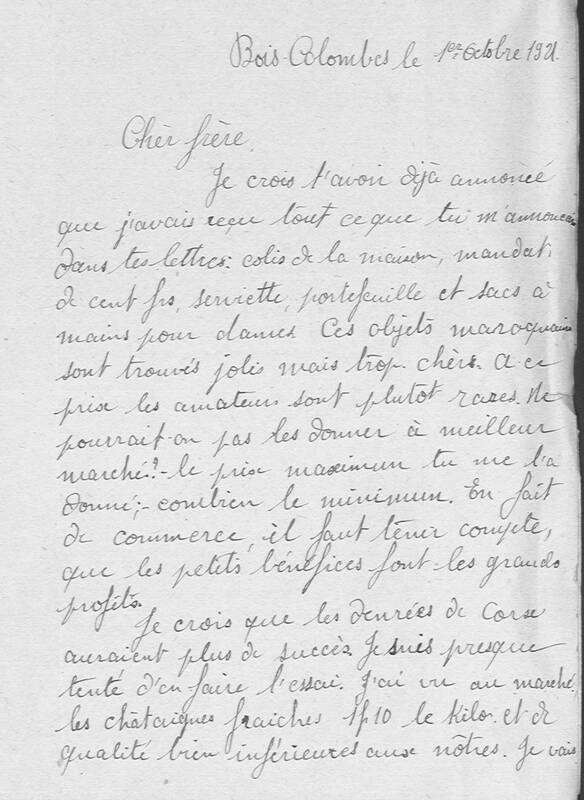 Bois-Colombes le 1er Octobre 1921.
Chèr frère,
Je crois t'avoir déjà annoncé
que j'avais reçu tout ce que tu m'annoncais
dans tes lettres: colis de la maison, mandat,
de cent frs, serviette, portefeuille et sacs à
mains pour dames. Ces objets maroquains
sont trouvés jolis mais trop chèrs. A ce
prix les amateurs sont plutôt rares. Ne
pourrait-on pas les donner à meilleur
marché? - le prix maximun tu me l'a
donné; - combien le minimum. En fait
de commerce, il faut tenir compte,
que les petits bénéfices font les grands
profits.
Je crois que les denrées de Corse
auraient plus de succès. Je suis presque
tenté d'en faire l'essai. J'ai vu au marché
les châtaignes fraiches 1f10 le Kilo. et de
qualité bien inférieures aux nôtres. Je vais